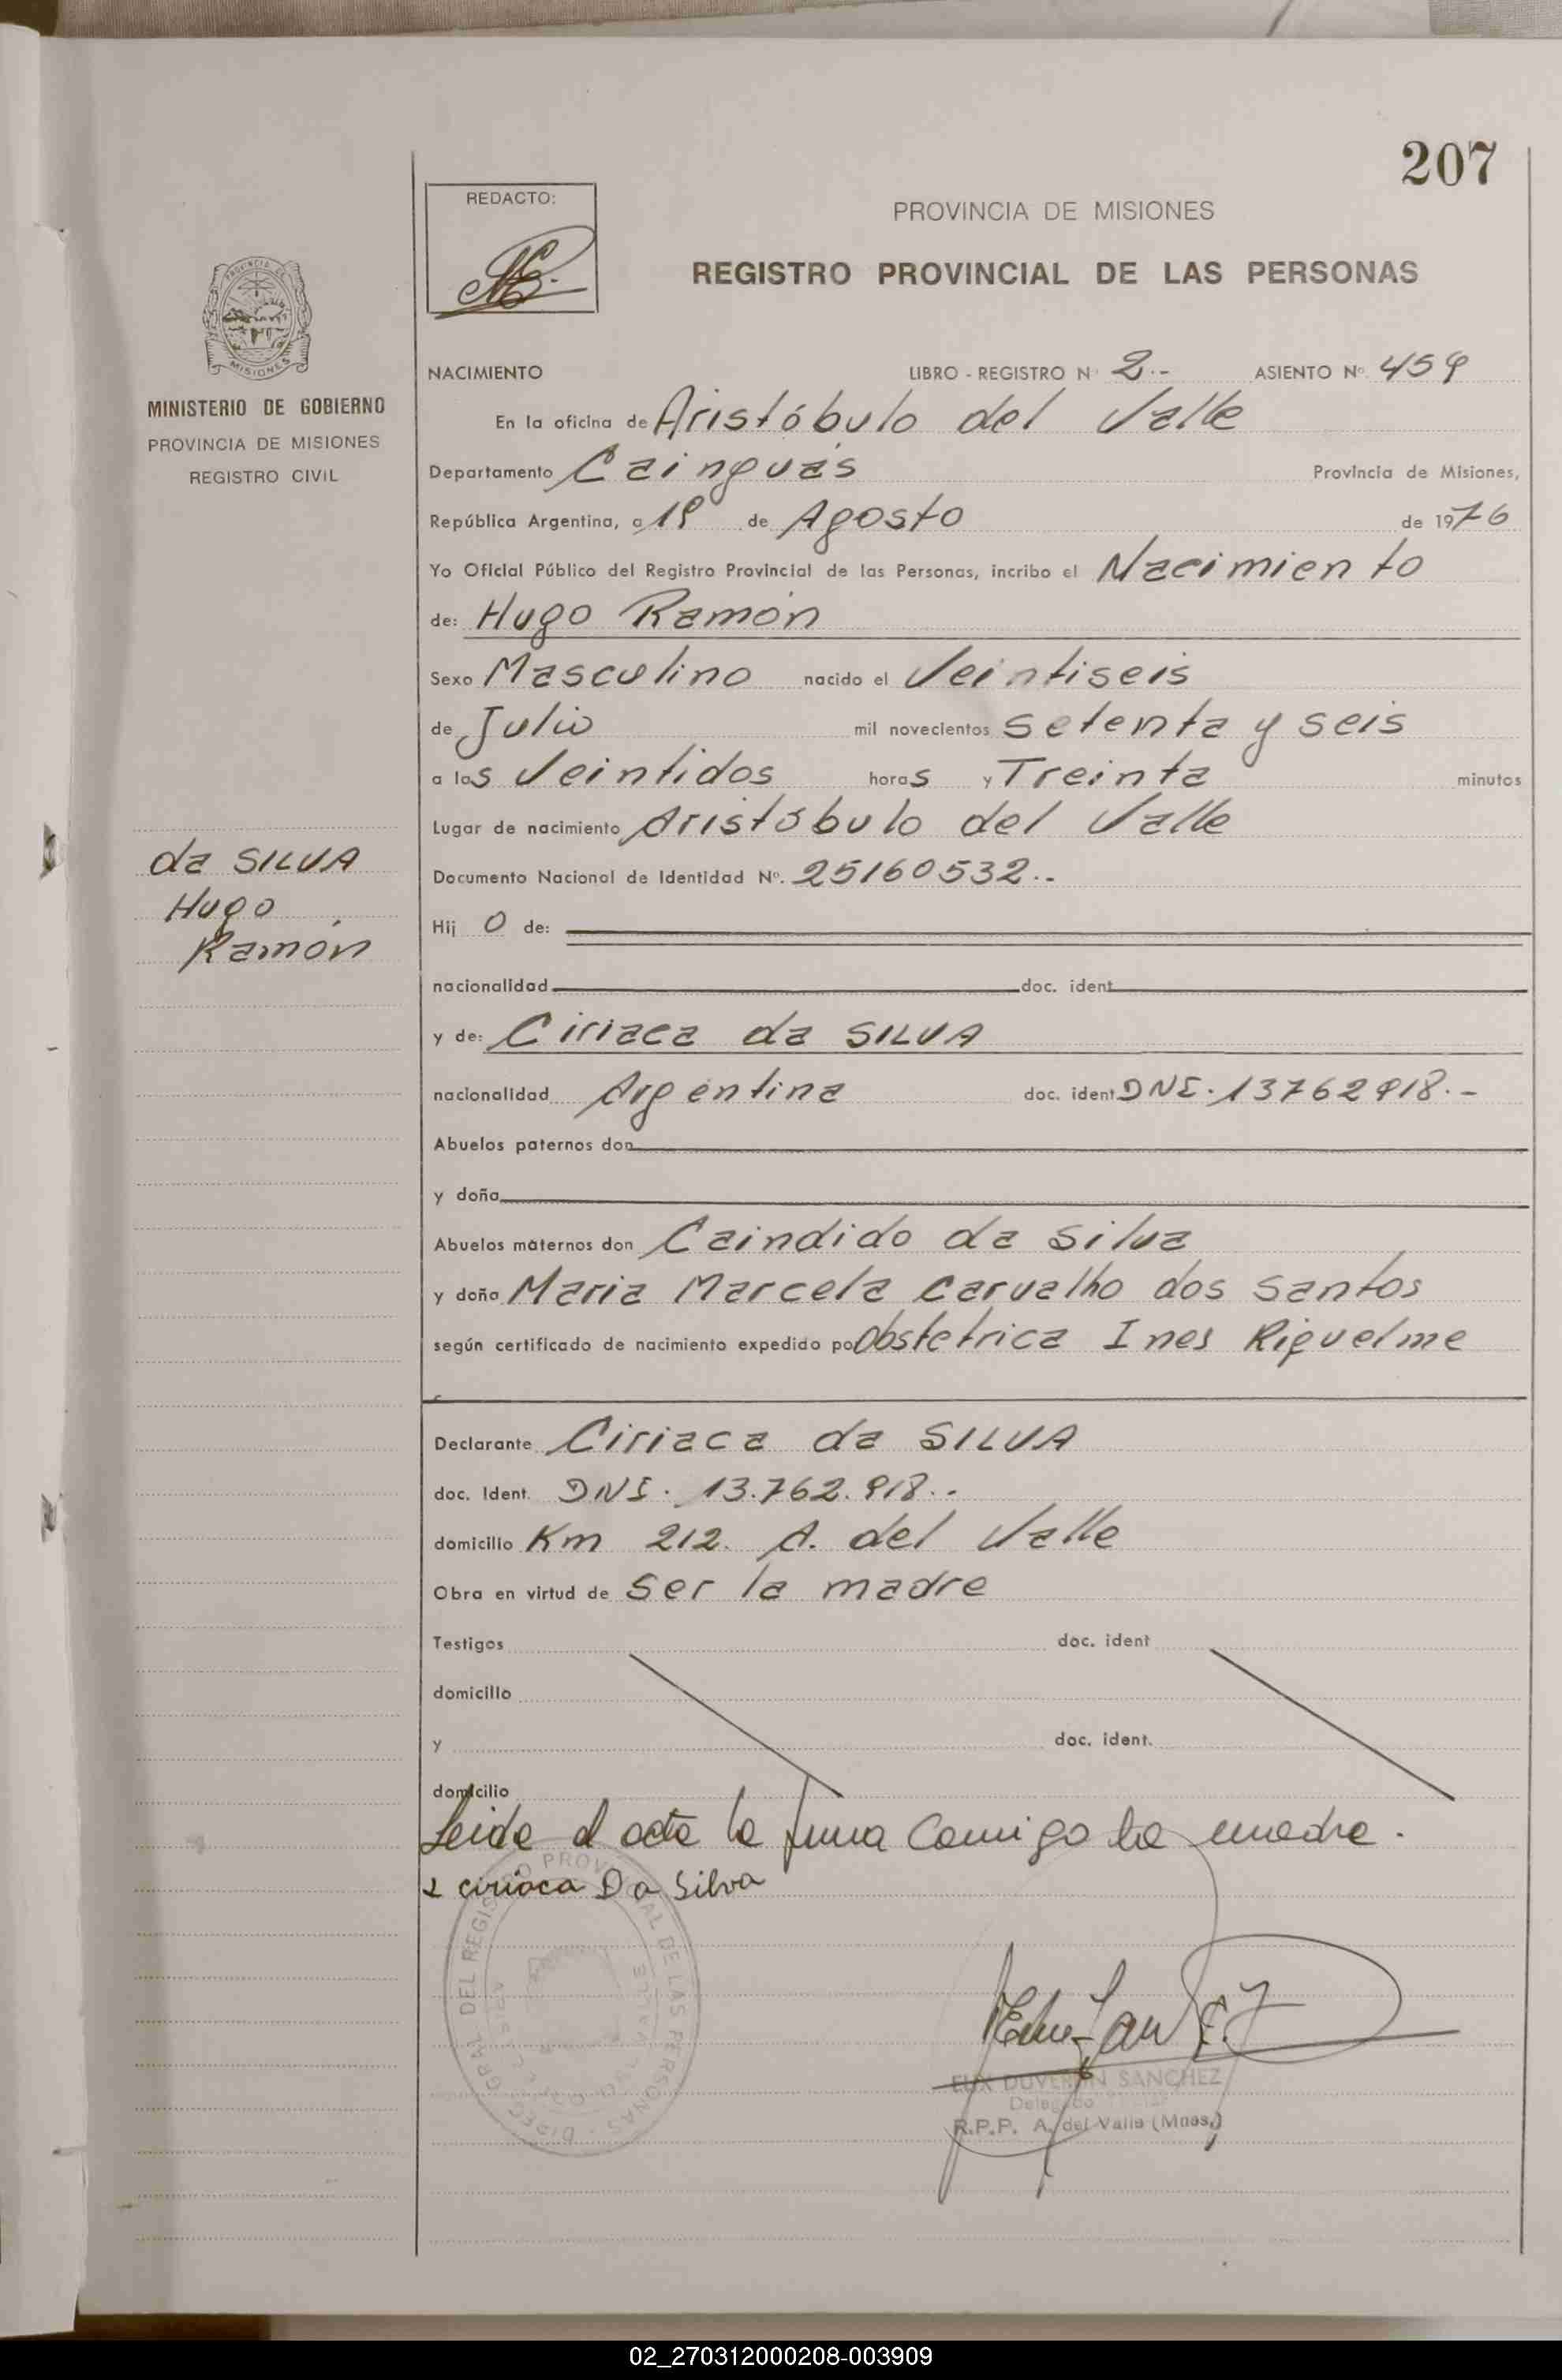 207
REDACTO:
PROVINCIA DE MISIONES
REGISTRO PROVINCIAL DE LAS PERSONAS
MISIONES
MINISTERIO DE GOBIERNO
PROVINCIA DE MISIONES
REGISTRO CIVIL
NACIMIENTO LIBRO - REGISTRO Nº 2.- ASIENTO Nº 459
En la oficina de Aristóbulo del Valle
Departamento Cainguás Provincia de Misiones,
República Argentina, a 19 de Agosto de 1976
Yo Oficial Público del Registro Provincial de las Personas, incribo el Nacimiento
de: Hugo Ramón
Sexo Masculino nacido el Veintiseis
de Julio mil novecientos setenta y seis
a las Veintidos horas y Treinta minutos
Lugar de nacimiento Aristóbulo del Valle
da SILVA
Hugo
Ramón
Documento Nacional de Identidad Nº. 25160532..
Hij o de:
nacionalidad doc. ident
y de: Ciriaca da SILVA
nacionalidad Argentina doc. ident DNI. 13762918.-
Abuelos paternos don
y doña
Abuelos maternos don Caindido da Silva
y doña Maria Marcela Carvalho dos Santos
según certificado de nacimiento expedido por Obstetrica Ines Riquelme
Declarante Ciriaca da SILVA
doc. Ident. DNI. 13.762.918..
domicilio Km 212. A. del Valle
Obra en virtud de ser la madre
Testigos doc. ident
domicilio
y doc. ident.
domicilio
Leida el acta la firma Comigo la madre.
ciriaca Da Silva
DIREC. GRAL. DEL REGISTRO PROVINCIAL DE LAS PERSONAS
SANCHEZ
Delegado
R.P.P. A. del Valle (Mnes.)
02_270312000208-003909